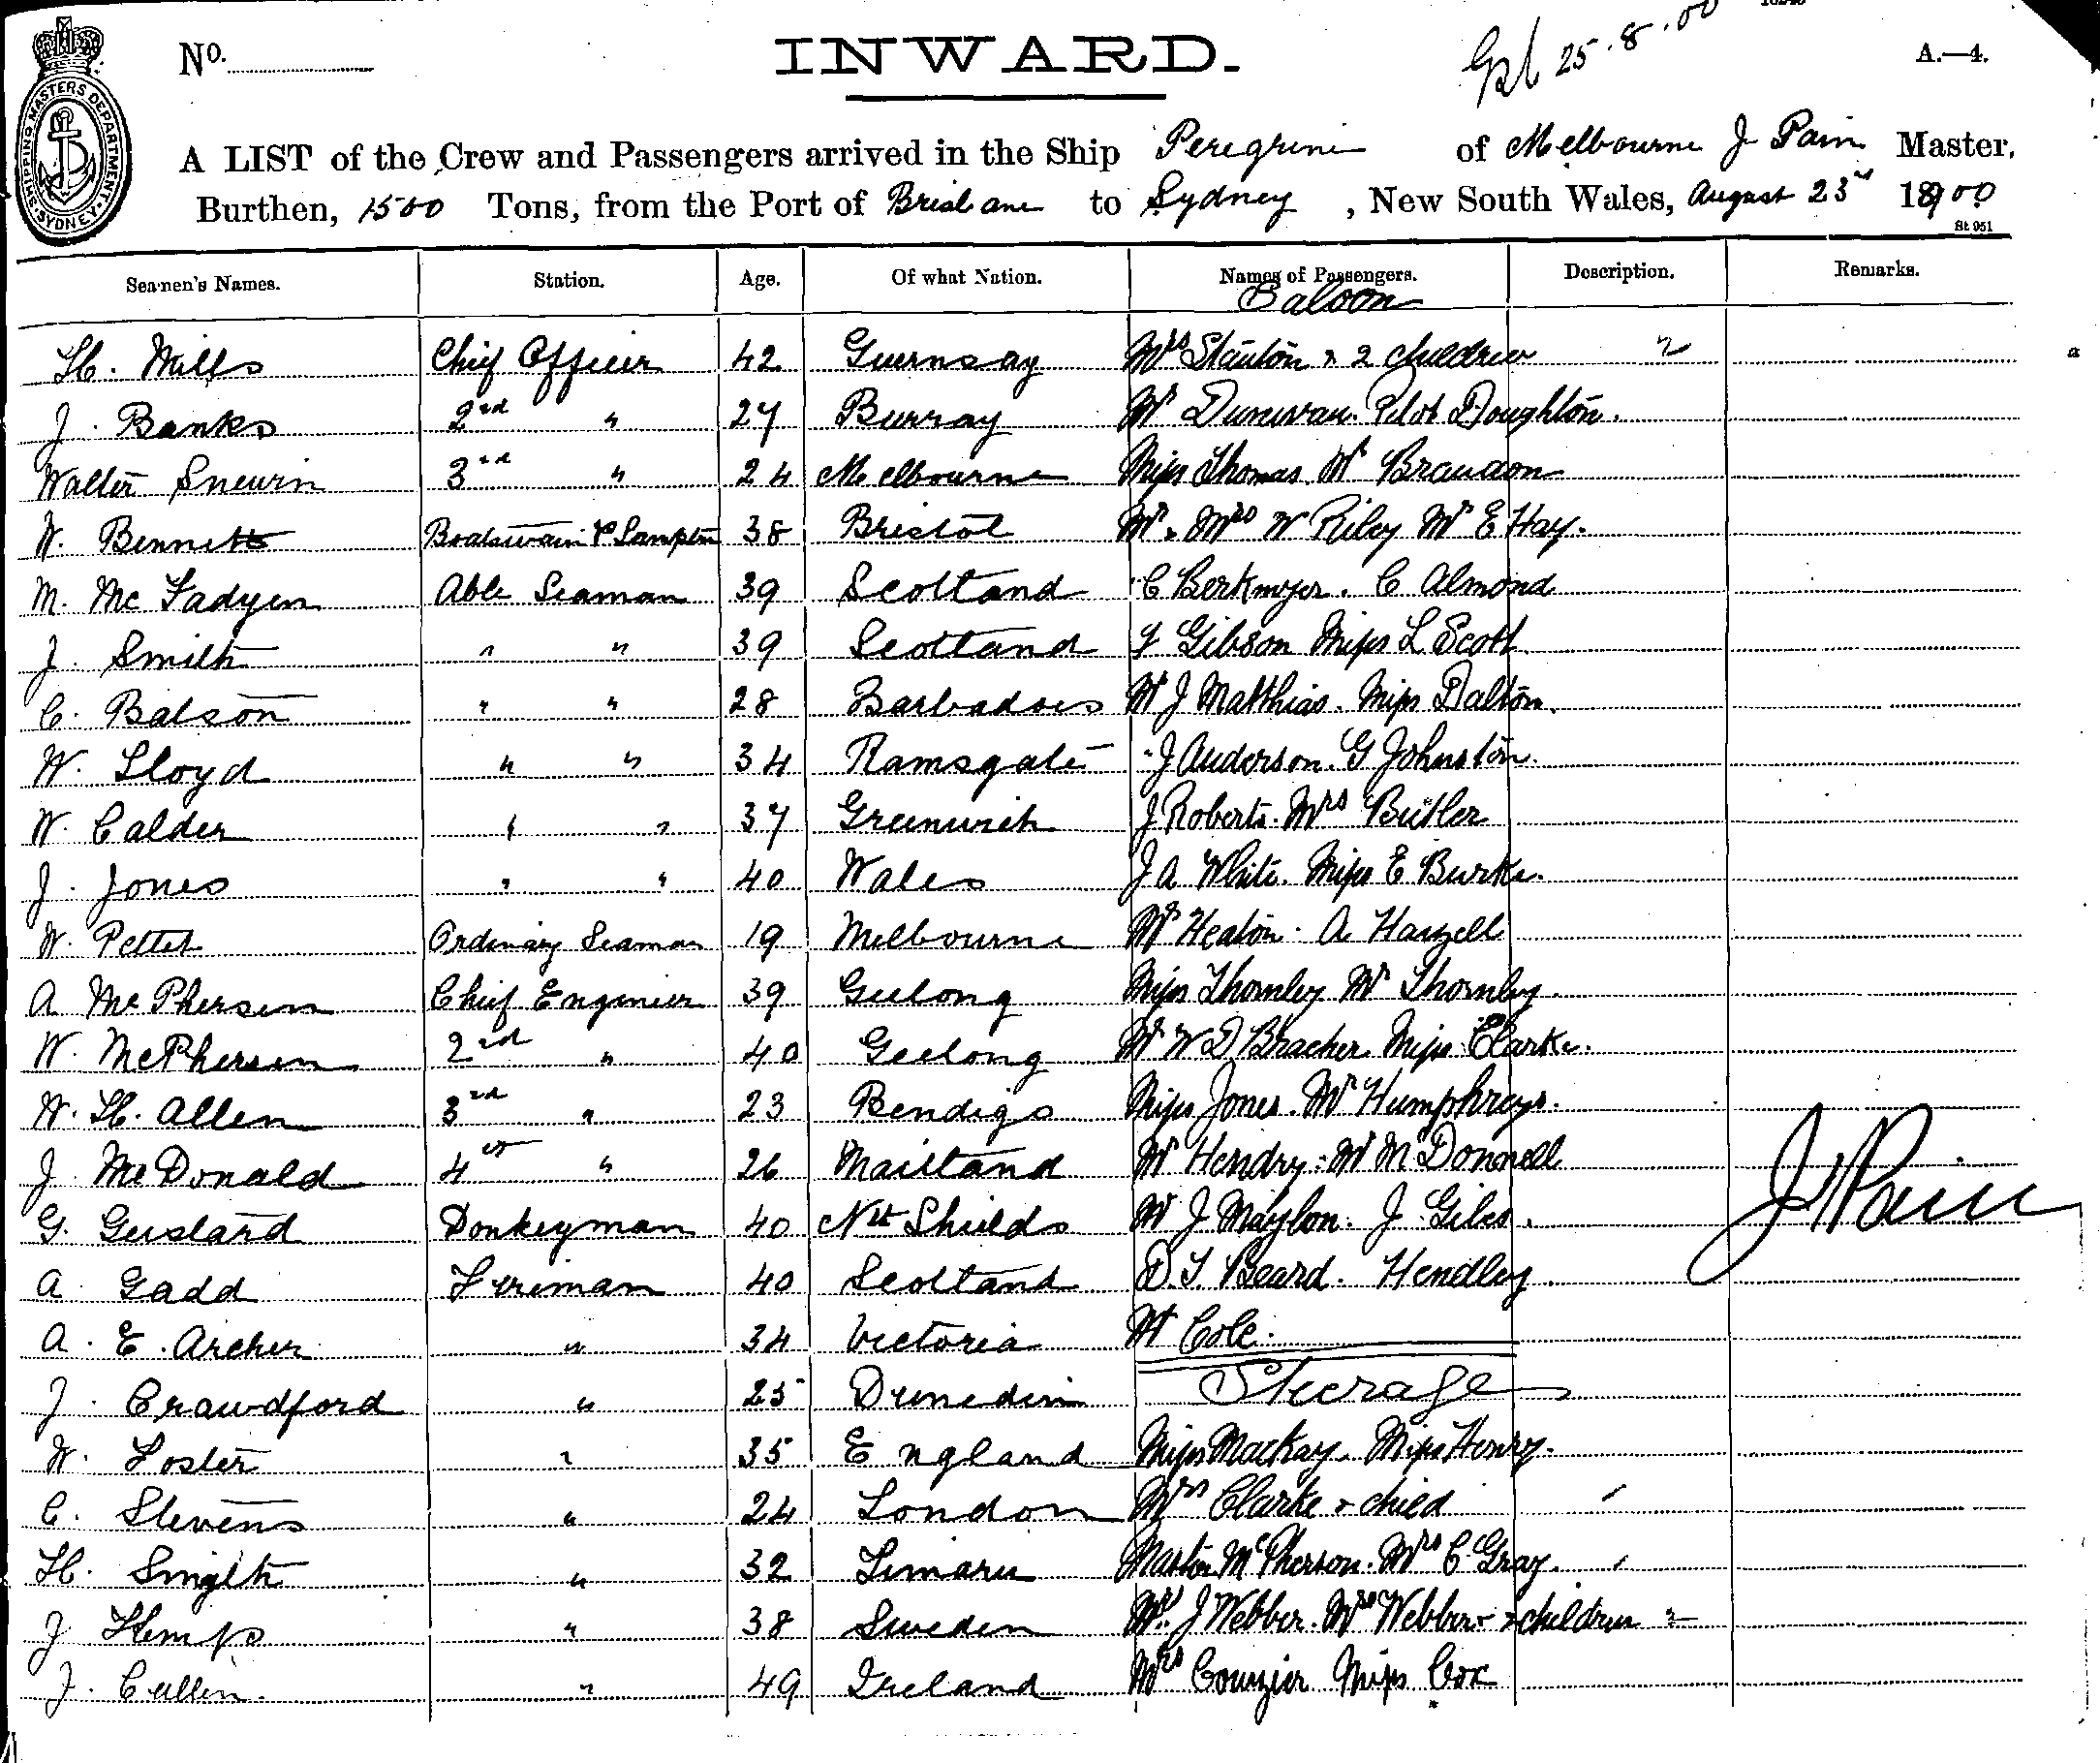 No.
INWARD.
25.8.00
A.—4.
SHIPPING MASTERS DEPARTMENT. SYDNEY.
A LIST of the Crew and Passengers arrived in the Ship Peregrine of Melbourne J Pain Master,
Burthen, 1500 Tons, from the Port of Brisbane to Sydney, New South Wales, August 23rd 1900
St 951
Seamen's Names. Station. Age. Of what Nation. Names of Passengers. Description. Remarks.
Saloon
H. Mills Chief Officer 42 Guernsay Mrs Stanton & 2 children 2
J. Banks 2nd " 27 Burray Mr Dunivan. Pilot Doughton.
Walter Snewin 3rd " 24 Melbourne Miss Thomas. Mr Branson
W. Bennett Boatswain & Lamptr 38 Bristol Mr & Mrs W Riley Mr E Hay.
M. McFadyen Able Seaman 39 Scotland C Berkmyer. C Almond
J. Smith " " 39 Scotland Gibson Miss L Scott
C. Batson " " 28 Barbadoes W J Matthias. Miss Dalton.
W. Lloyd " " 34 Ramsgate J Anderson. G Johnston.
W. Calder " " 37 Greenwich J Roberts. Mrs Butler
J. Jones " " 40 Wales J A White. Miss E Burke.
W. Pettet Ordinary Seaman 19 Melbourne Mr Heaton. A Harzell
A McPherson Chief Engineer 39 Geelong Miss Thornley Mr Thornley.
W. McPherson 2nd " 40 Geelong Mr W D Bracher Miss Clarke.
W. H. Allen 3rd " 23 Bendigo Miss Jones. Mr Humphreys.
J. McDonald 4th " 26 Maitland Mr Hendry. Mr McDonnell
G. Gustard Donkeyman 40 Nth Shields Mr J Maylon. J. Giles.
J Pain
A. Gadd Fireman 40 Scotland D. T. Beard. Hendley.
A. E. Archer " 34 Victoria W Cole.
J. Crawdford " 25 Dunedin Steerage
W. Foster " 35 England Miss Mackay. Miss Henry.
C. Stevens " 24 London Mrs Clarke & child
H. Smigth " 32 Timaru Master McPherson. Mrs C. Gray.
J Hemp " 38 Sweden Mr J Webber. Mrs Webber & 2 children 2
J. Cullen " 49 Ireland Mrs Miss Cox